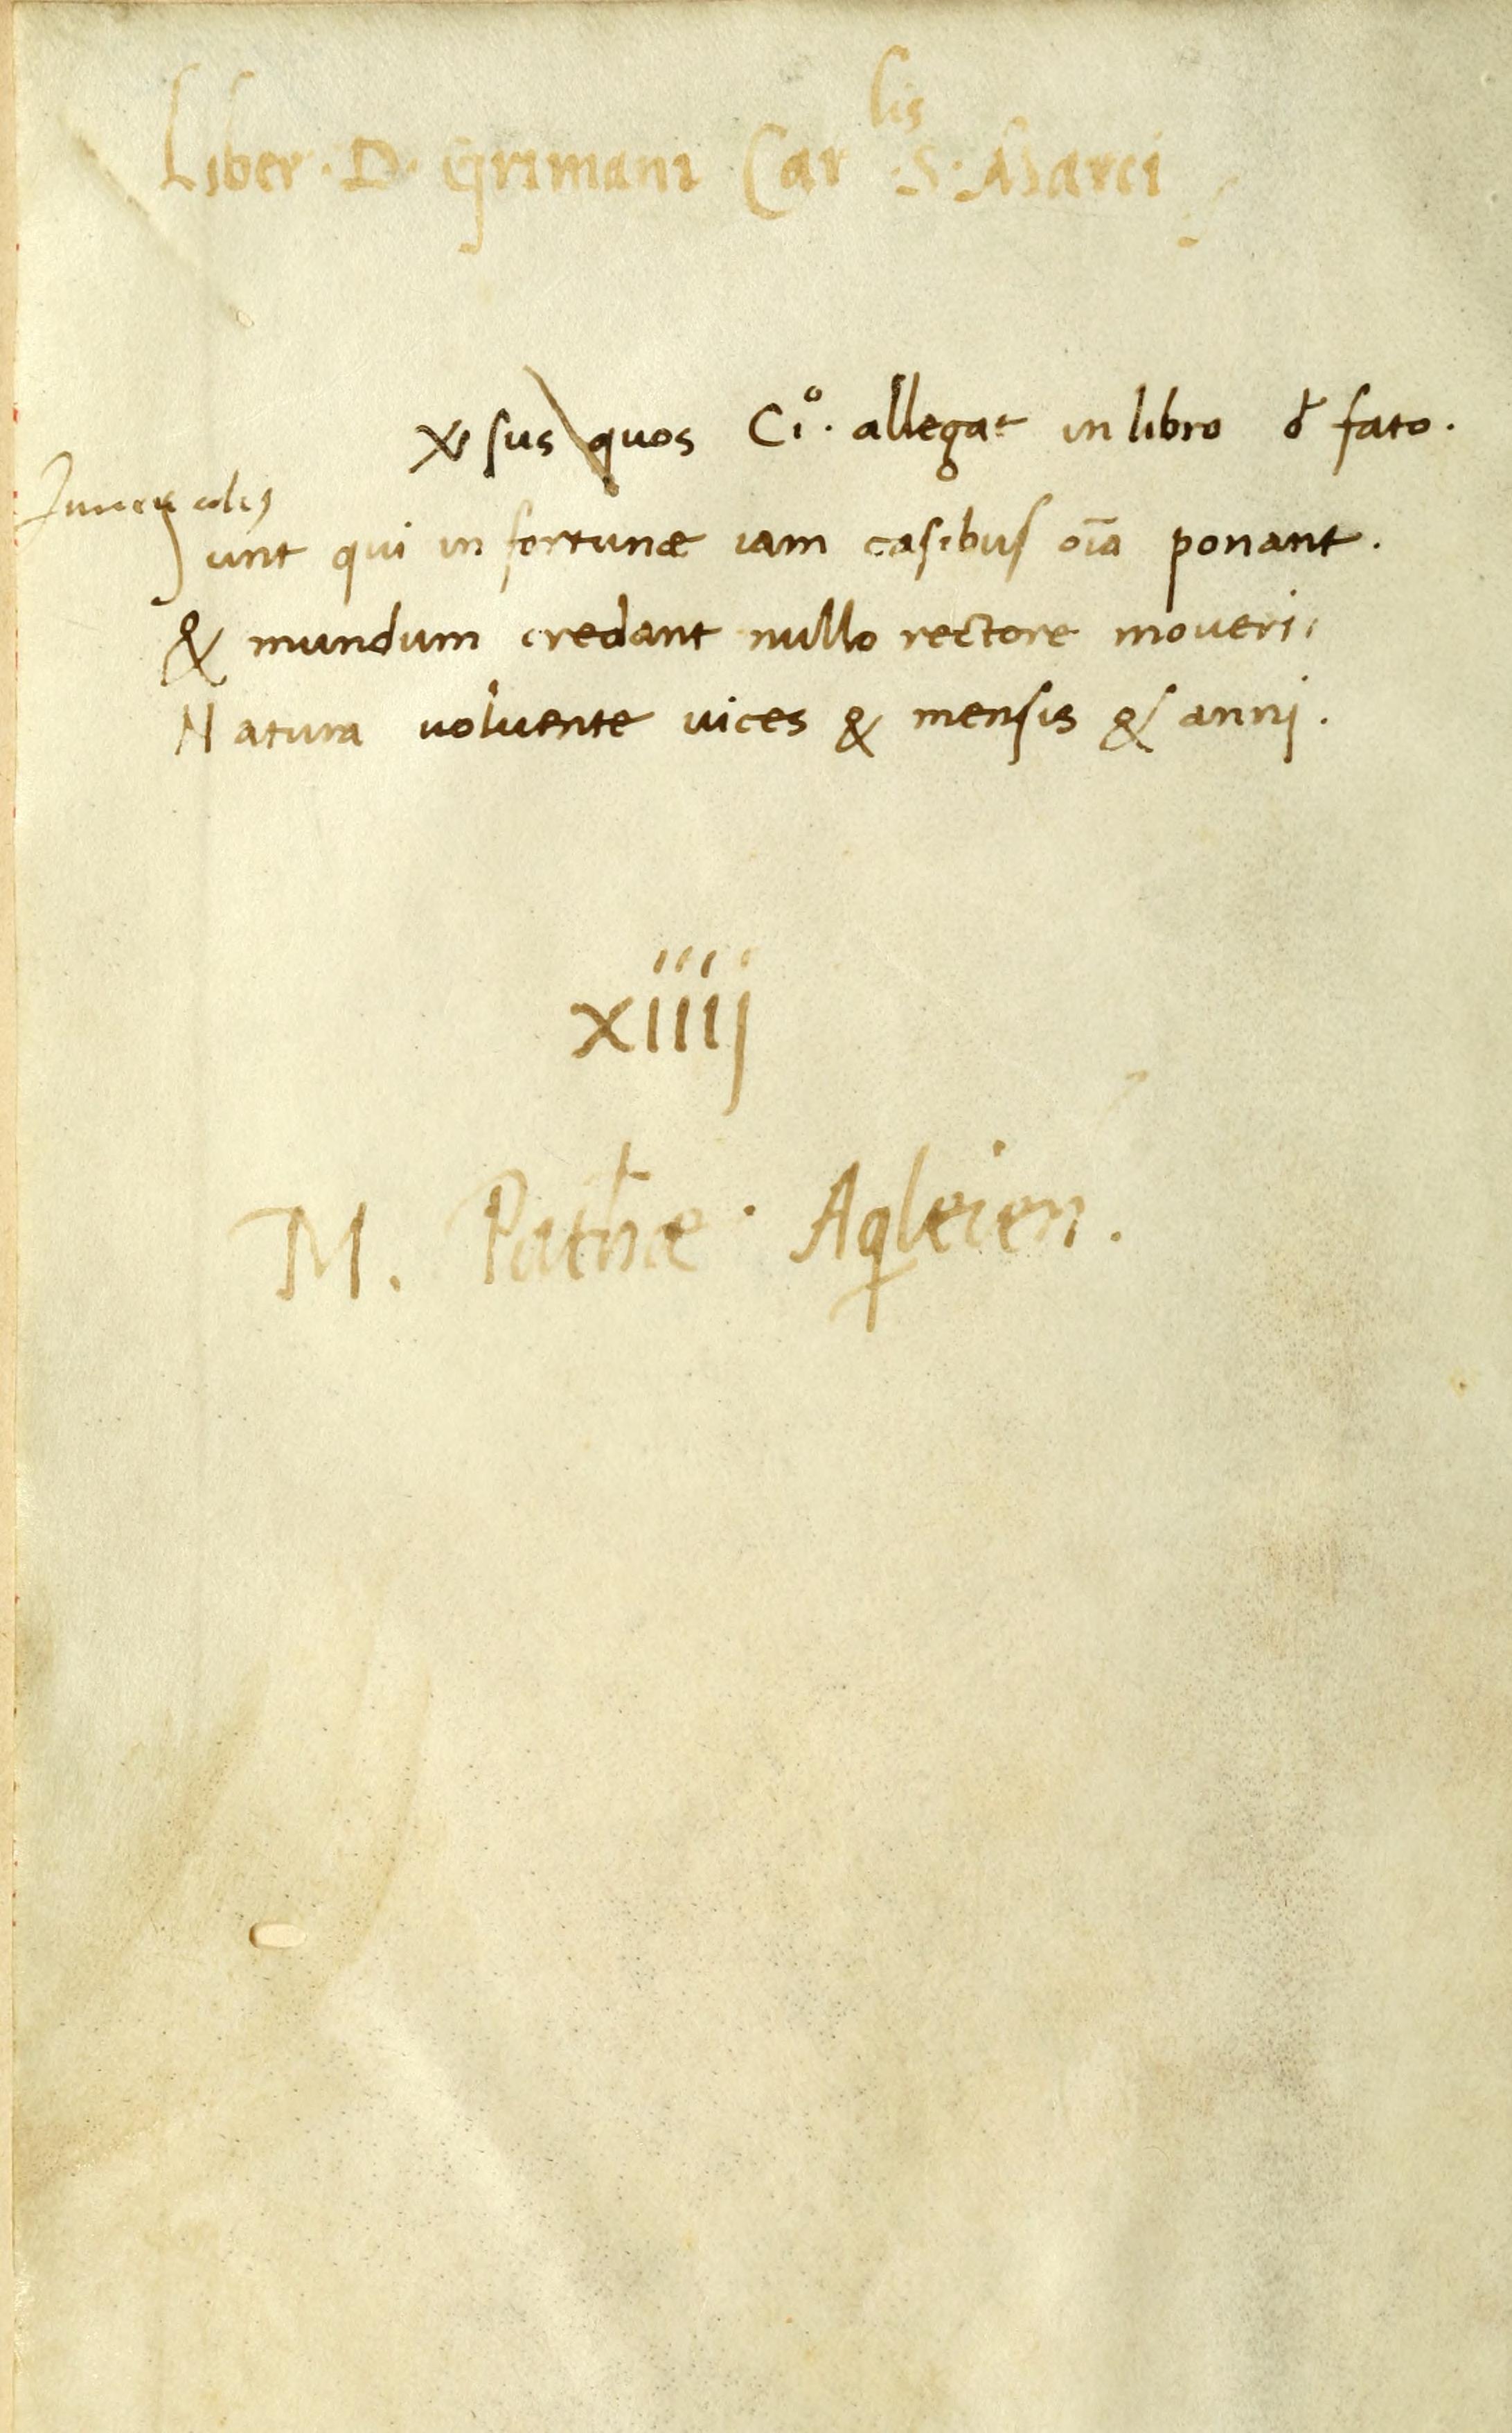 Liber · D · Grimani Car^lis · S · Marci
℣sus quos Ci^o · allegat in libro đ fato ·
Iuvenalis
Sunt qui in fortunæ iam casibus oı̄a ponant ·
& mundum credant nullo rectore moveri
Natura volvente vices & mensis & anni ·
xiiij
M. Pathæ · Aqleien .